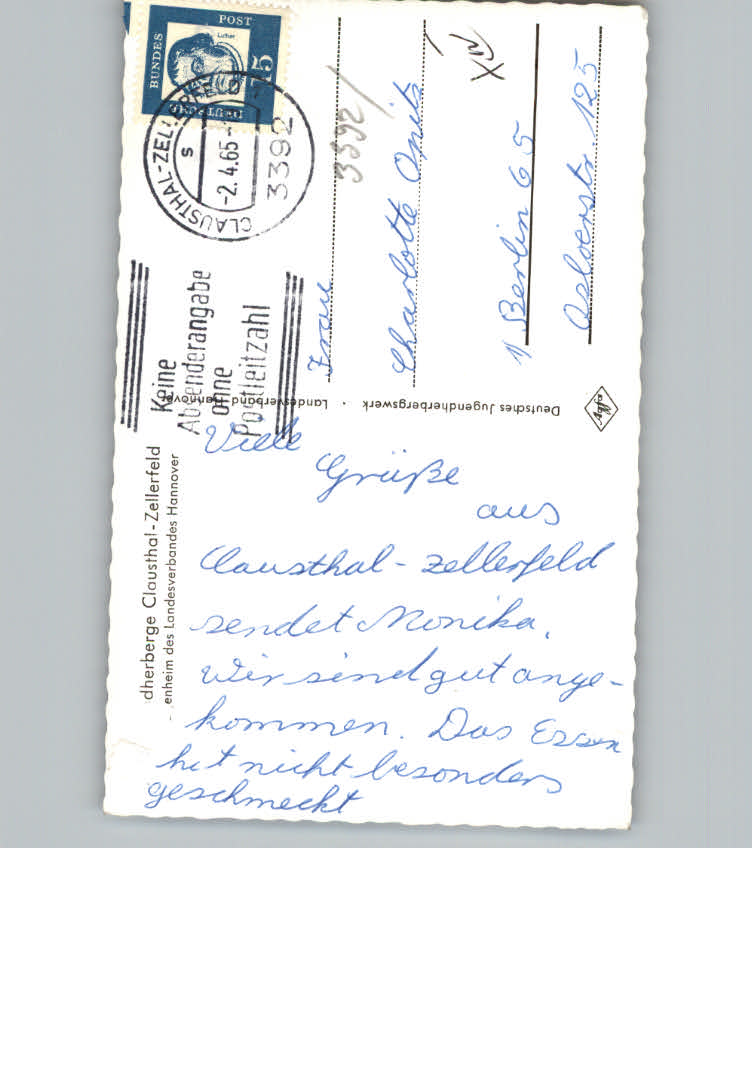 dherberge Clausthal-Zellerfeld
enheim des Landesverbandes Hannover
Viele
Grüße
aus
Clausthal-Zellerfeld
sendet Monika.
Wir sind gut ange-
kommen. Das Essen
hat nicht besonders
geschmeckt
Deutsches Jugendherbergswerk · Landesverband Hannover
Agfa
Keine
Absenderangabe
ohne
Postleitzahl
CLAUSTHAL-ZELLERFELD
s
-2.4.65-
3392
DEUTSCHE
BUNDES
POST
15
Luther
3392/
Frau
Charlotte Opitz
1/ Berlin 65
Osloerstr. 125